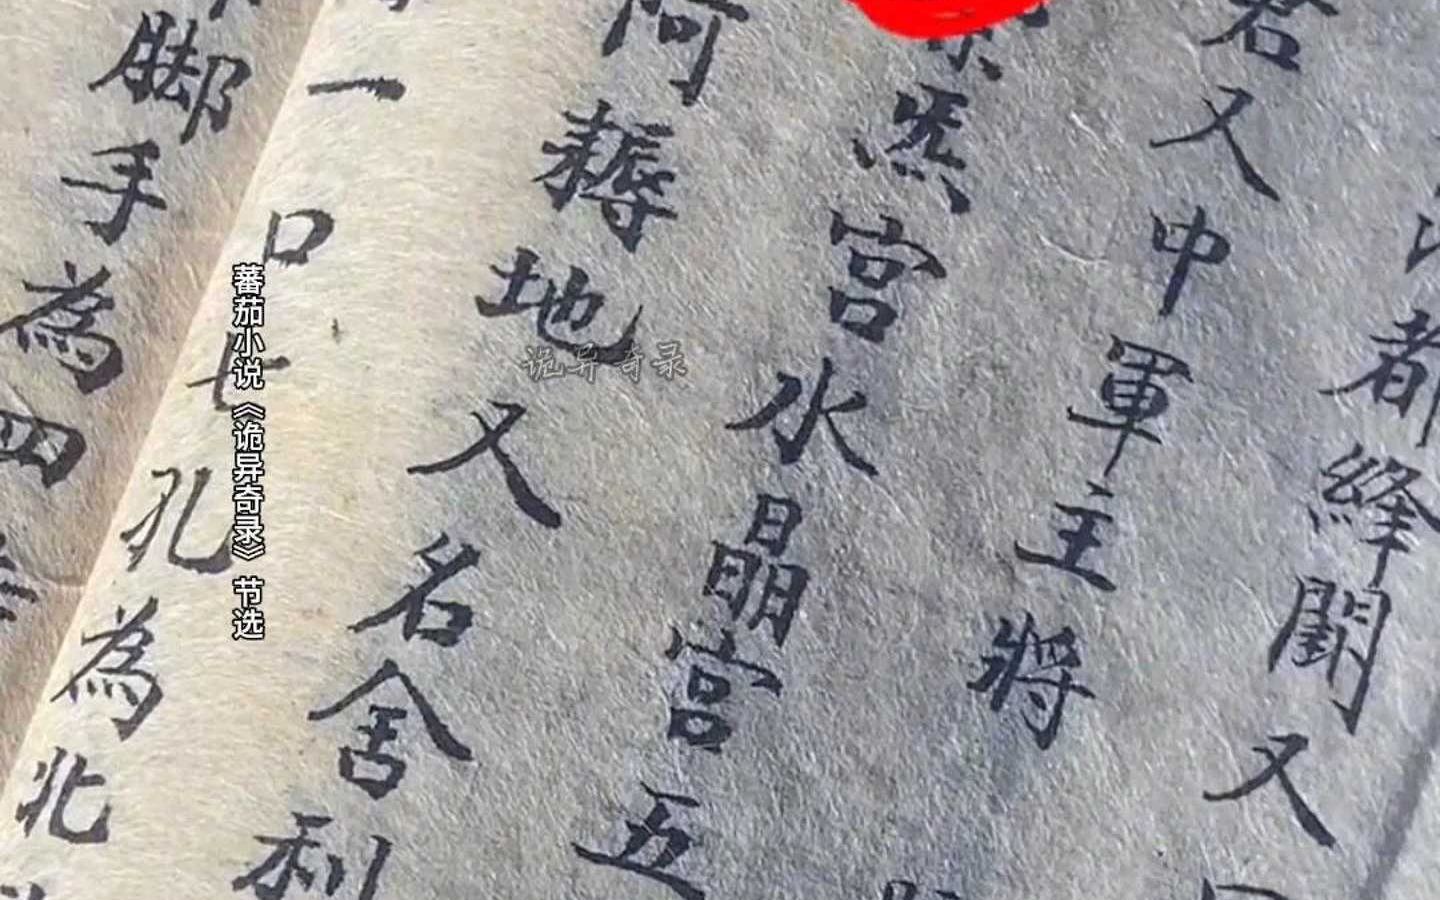 都絳闕又
君又中軍主將
炁宮水晶宮五
阿耨地又名舍利
一口七孔為北
脚手為四
蕃茄小说《诡异奇录》节选
诡异奇录